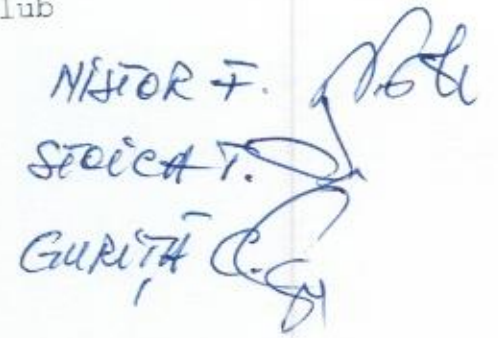 lub
NISTOR F.
STOICA T.
GURIȚĂ C.